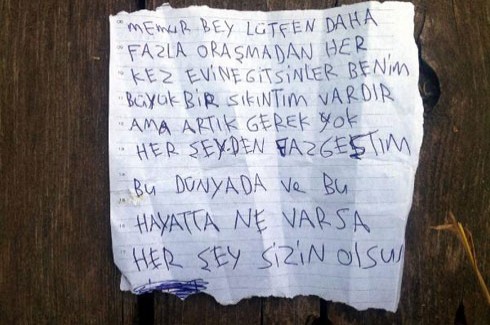 MEMUR BEY LÜTFEN DAHA
FAZLA ORAŞMADAN HER
KEZ EVİNE GİTSİNLER BENİM
BÜYÜK BİR SIKINTIM VARDIR
AMA ARTIK GEREK YOK
HER ŞEYDEN VAZGEŞTİM
BU DÜNYADA VE BU
HAYATTA NE VARSA
HER ŞEY SİZİN OLSUN